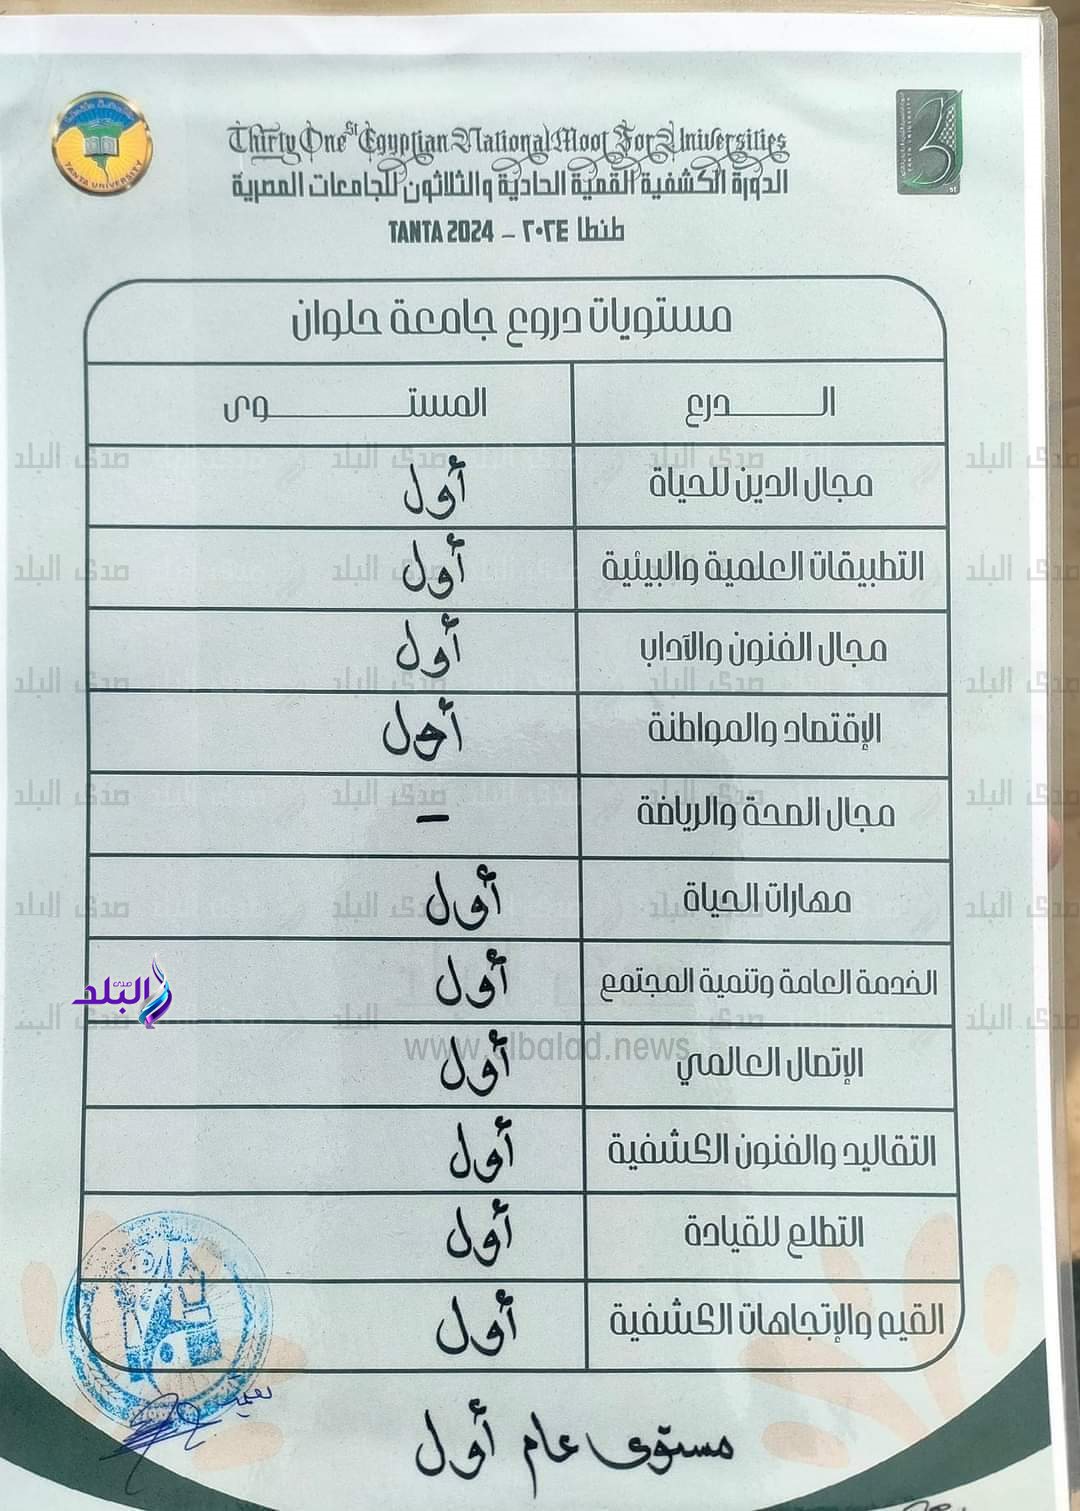 TANTA UNIVERSITY
Thirty One st Egyptian National Moot For Universities
الدورة الكشفية القمية الحادية والثلاثون للجامعات المصرية
طنطا ٢٠٢٤ – TANTA 2024
مستويات دروع جامعة حلوان
الـــــدرع المستـــــــــوى
مجال الدين للحياة أول
التطبيقات العلمية والبيئية أول
مجال الفنون والآداب أول
الإقتصاد والمواطنة أول
مجال الصحة والرياضة –
مهارات الحياة أول
الخدمة العامة وتنمية المجتمع أول
الإتصال العالمي أول
التقاليد والفنون الكشفية أول
التطلع للقيادة أول
القيم والإتجاهات الكشفية أول
مستوى عام أول
صدى البلد
www.elbalad.news